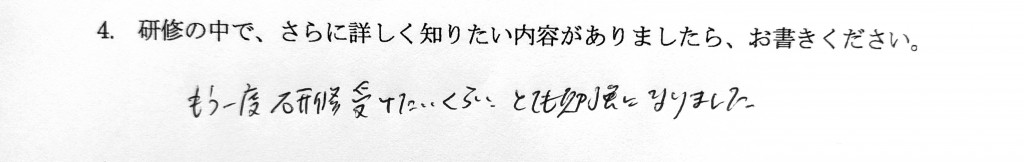 4. 研修の中で、さらに詳しく知りたい内容がありましたら、お書きください。
もう一度研修受けたいくらい とても勉強になりました